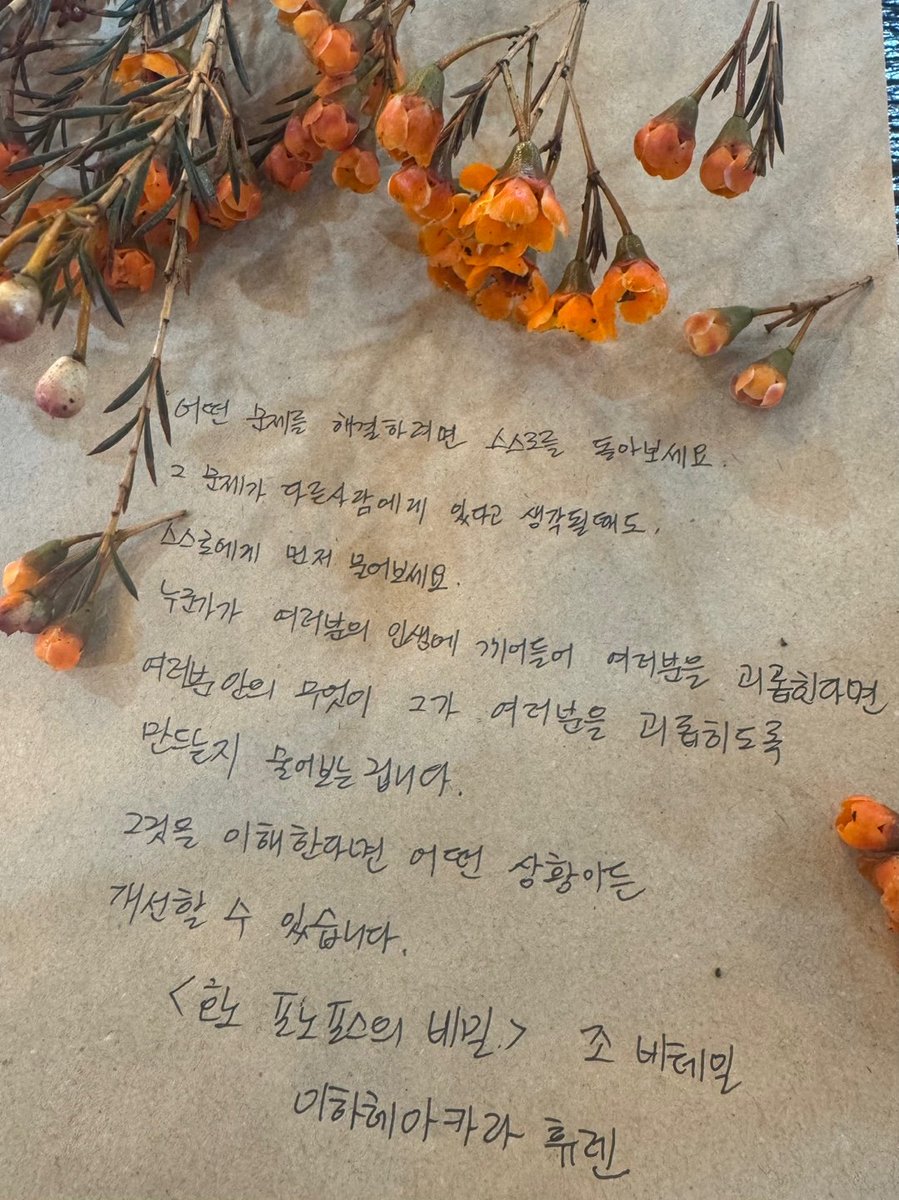 어떤 문제를 해결하려면 스스로를 돌아보세요.
그 문제가 다른사람에게 있다고 생각될때도,
스스로에게 먼저 물어보세요.
누군가가 여러분의 인생에 끼어들어 여러분을 괴롭힌다면
여러분안의 무엇이 그가 여러분을 괴롭히도록
만드는지 물어보는겁니다.
그것을 이해한다면 어떤 상황이든
개선할 수 있습니다.
<호노 포노포스의 비밀.> 조 바테일
이하레아카라 휴렌